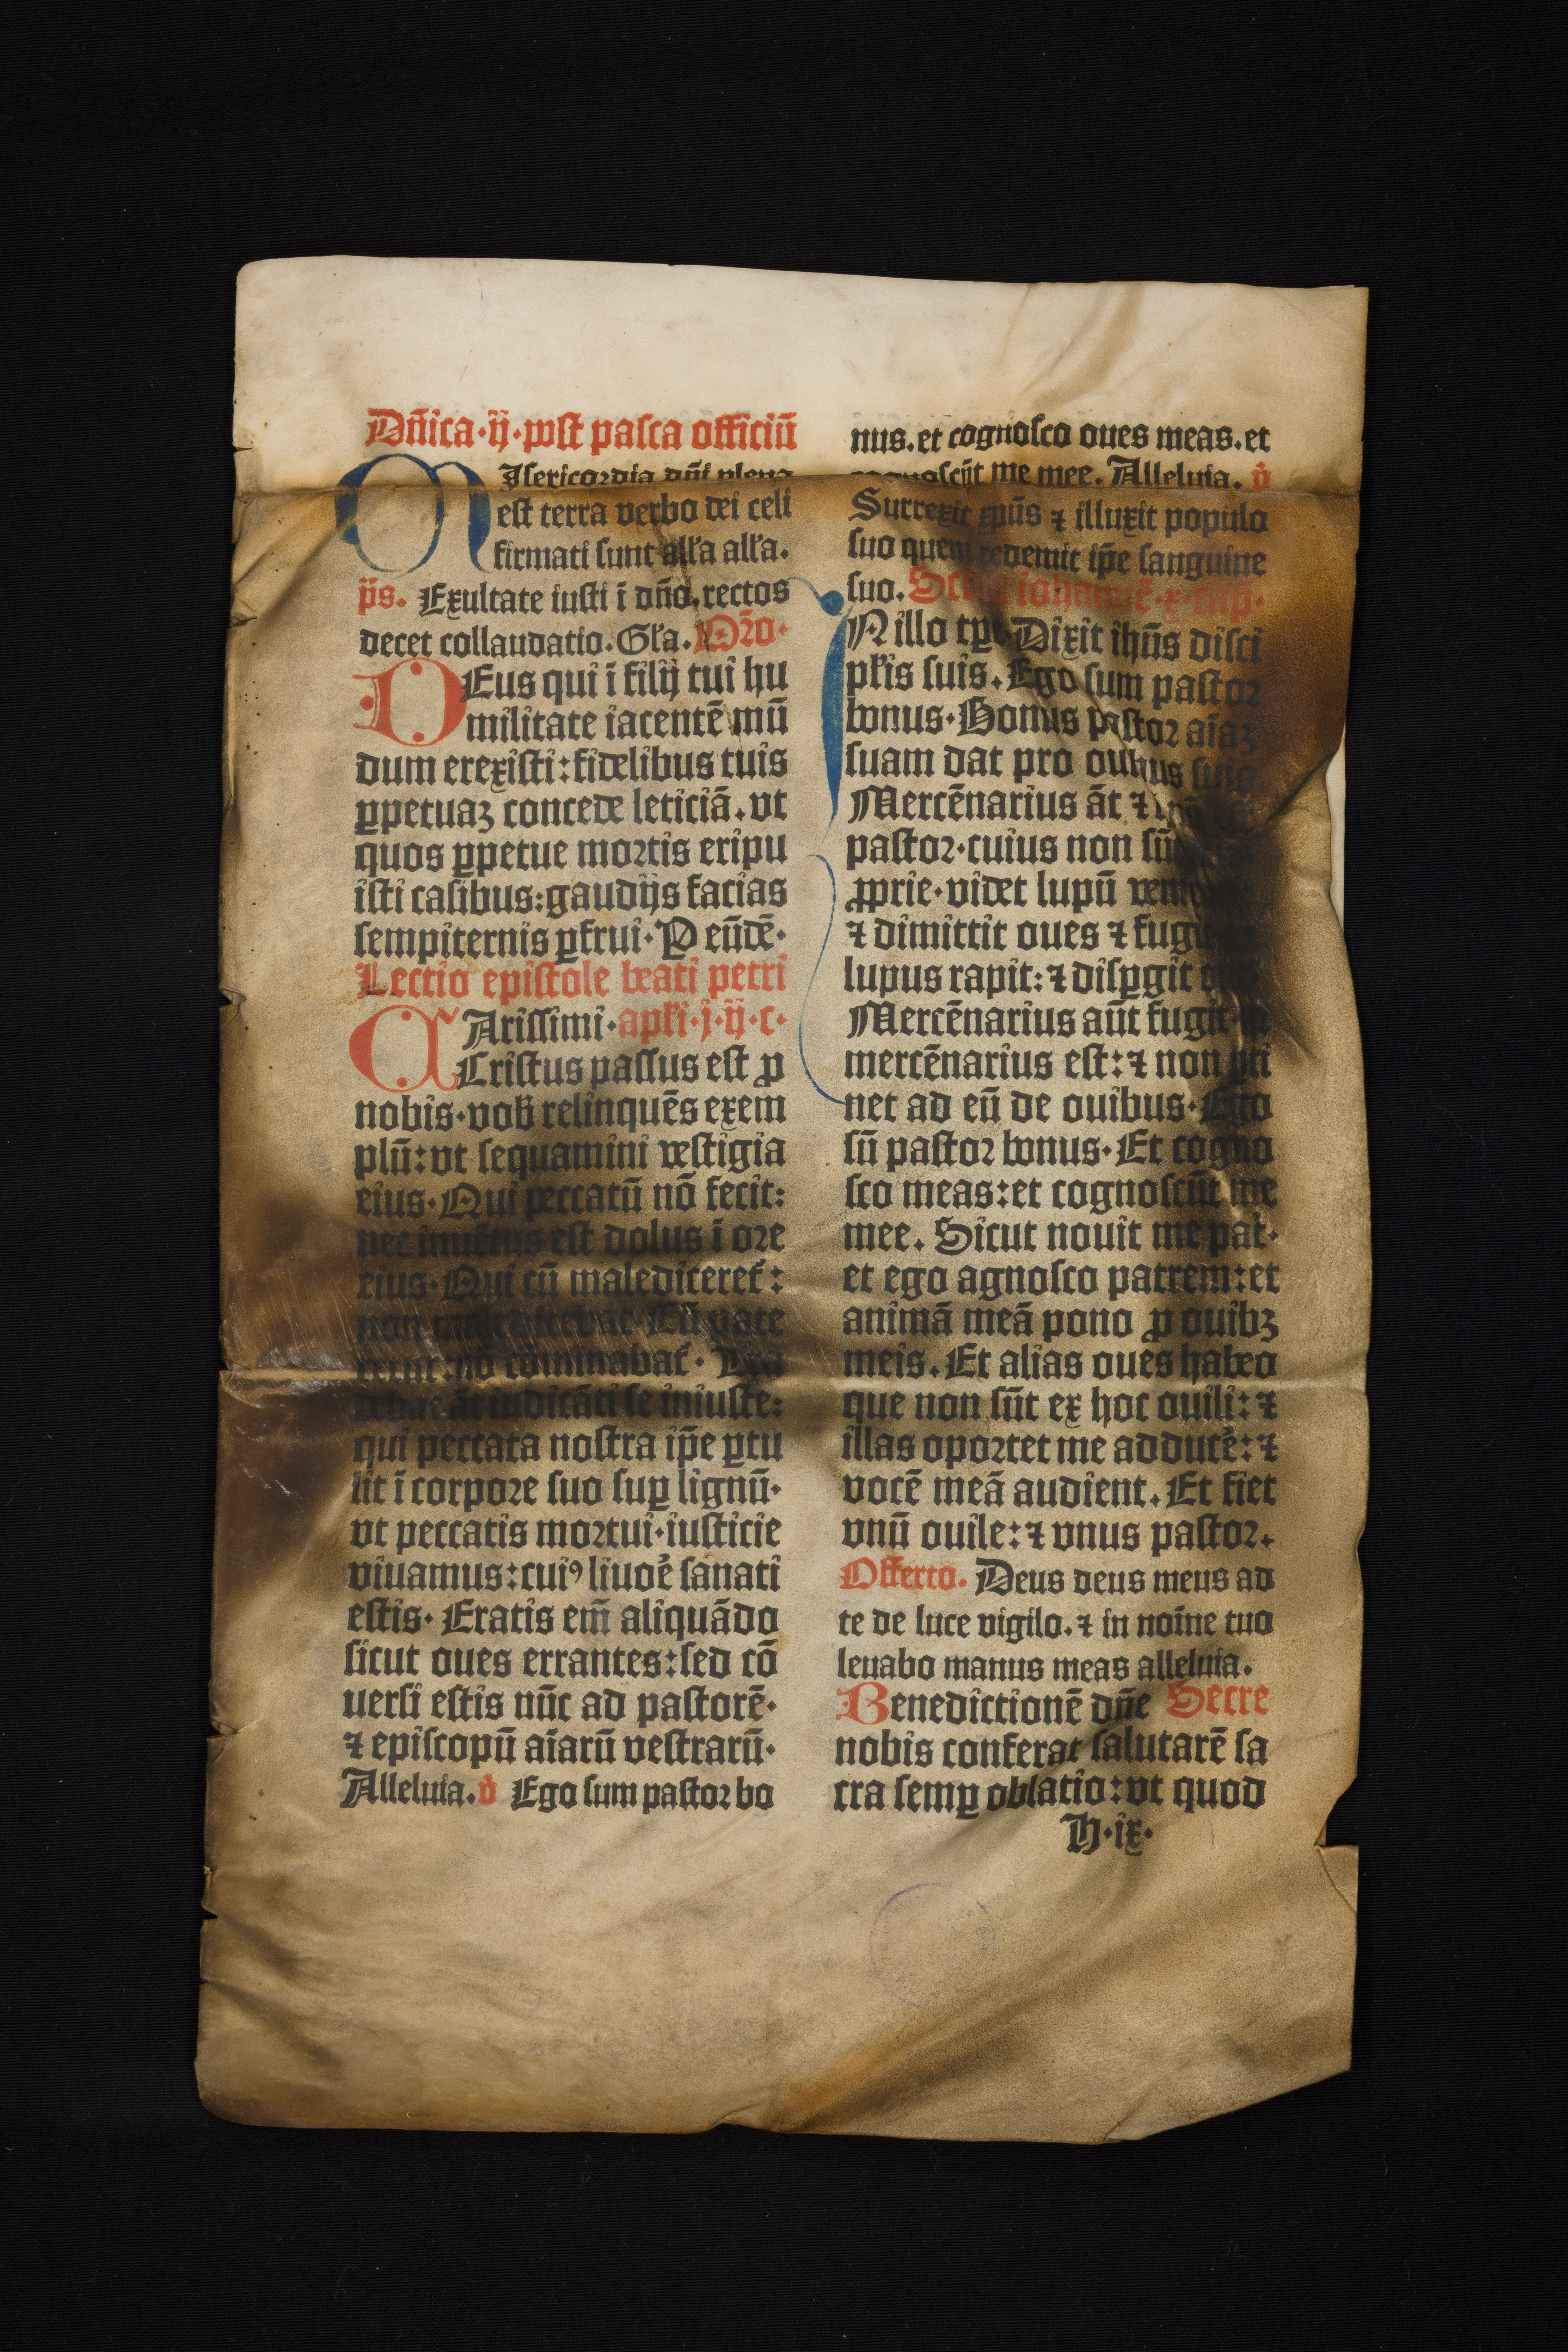 Dñica·ij·post pasca officiũ
MIsericordia dñi plena
est terra verbo dei celi
firmati sunt all'a all'a.
p̃s. Exultate iusti ĩ dño. rectos
decet collaudatio. Gl'a. Oro·
DEus qui ĩ filij tui hu
militate iacentẽ mũ
dum erexisti: fidelibus tuis
ꝑpetuaꝫ concede leticiã. vt
quos ꝑpetue mortis eripu
isti casibus: gaudijs facias
sempiternis ꝑfrui· P eũdẽ·
Lectio epistole beati petri
CArissimi· apl'i·j·ij·c·
Cristus passus est ꝓ
nobis· vob̃ relinquẽs exem
plũ: vt sequamini vestigia
eius· Qui peccatũ nõ fecit:
nec inuẽtus est dolus ĩ ore
eius· Qui cũ malediceret̃:
non maledicebat· Cũ pate
retur: nõ cõminabat̃· Tra
debat ãt iudicãti se iniuste:
qui peccata nostra ip̃e ꝑtu
lit ĩ corpore suo suꝑ lignũ·
vt peccatis mortui· iusticie
viuamus: cuiꝰ liuoẽ sanati
estis· Eratis em̃ aliquãdo
sicut oues errantes: sed cõ
uersi estis nũc ad pastorẽ·
⁊ episcopũ aĩarũ vestrarũ·
Alleluia. v̾ Ego sum pastor bo
nus. et cognosco oues meas. et
cognoscũt me mee. Alleluia. v̾
Surrexit xp̃us ⁊ illuxit populo
suo quem redemit ip̃e sanguine
suo. Scd̃m iohannẽ·x·cap̃·
IN illo tꝑe· Dixit ihũs disci
pl'is suis. Ego sum pastor
bonus· Bonus pastor aĩaꝫ
suam dat pro ouibus suis
Mercẽnarius ãt ⁊
pastor· cuius non sũt
ꝓprie· videt lupũ
⁊ dimittit oues ⁊ fugit
lupus rapit: ⁊ disꝑgit
Mercẽnarius aũt fugit·
mercẽnarius est: ⁊ non ꝑti
net ad eũ de ouibus· Ego
sũ pastor bonus· Et cogno
sco meas: et cognoscũt me
mee. Sicut nouit me pat̾·
et ego agnosco patrem: et
animã meã pono ꝓ ouibꝫ
meis. Et alias oues habeo
que non sũt ex hoc ouili: ⁊
illas oportet me adducẽ: ⁊
vocẽ meã audient. Et fiet
vnũ ouile: ⁊ vnus pastor.
Offerto. Deus deus meus ad
te de luce vigilo. ⁊ in noĩne tuo
leuabo manus meas alleluia.
Benedictionẽ dñe Secre
nobis conferat salutarẽ sa
cra semꝑ oblatio: vt quod
H·ix·